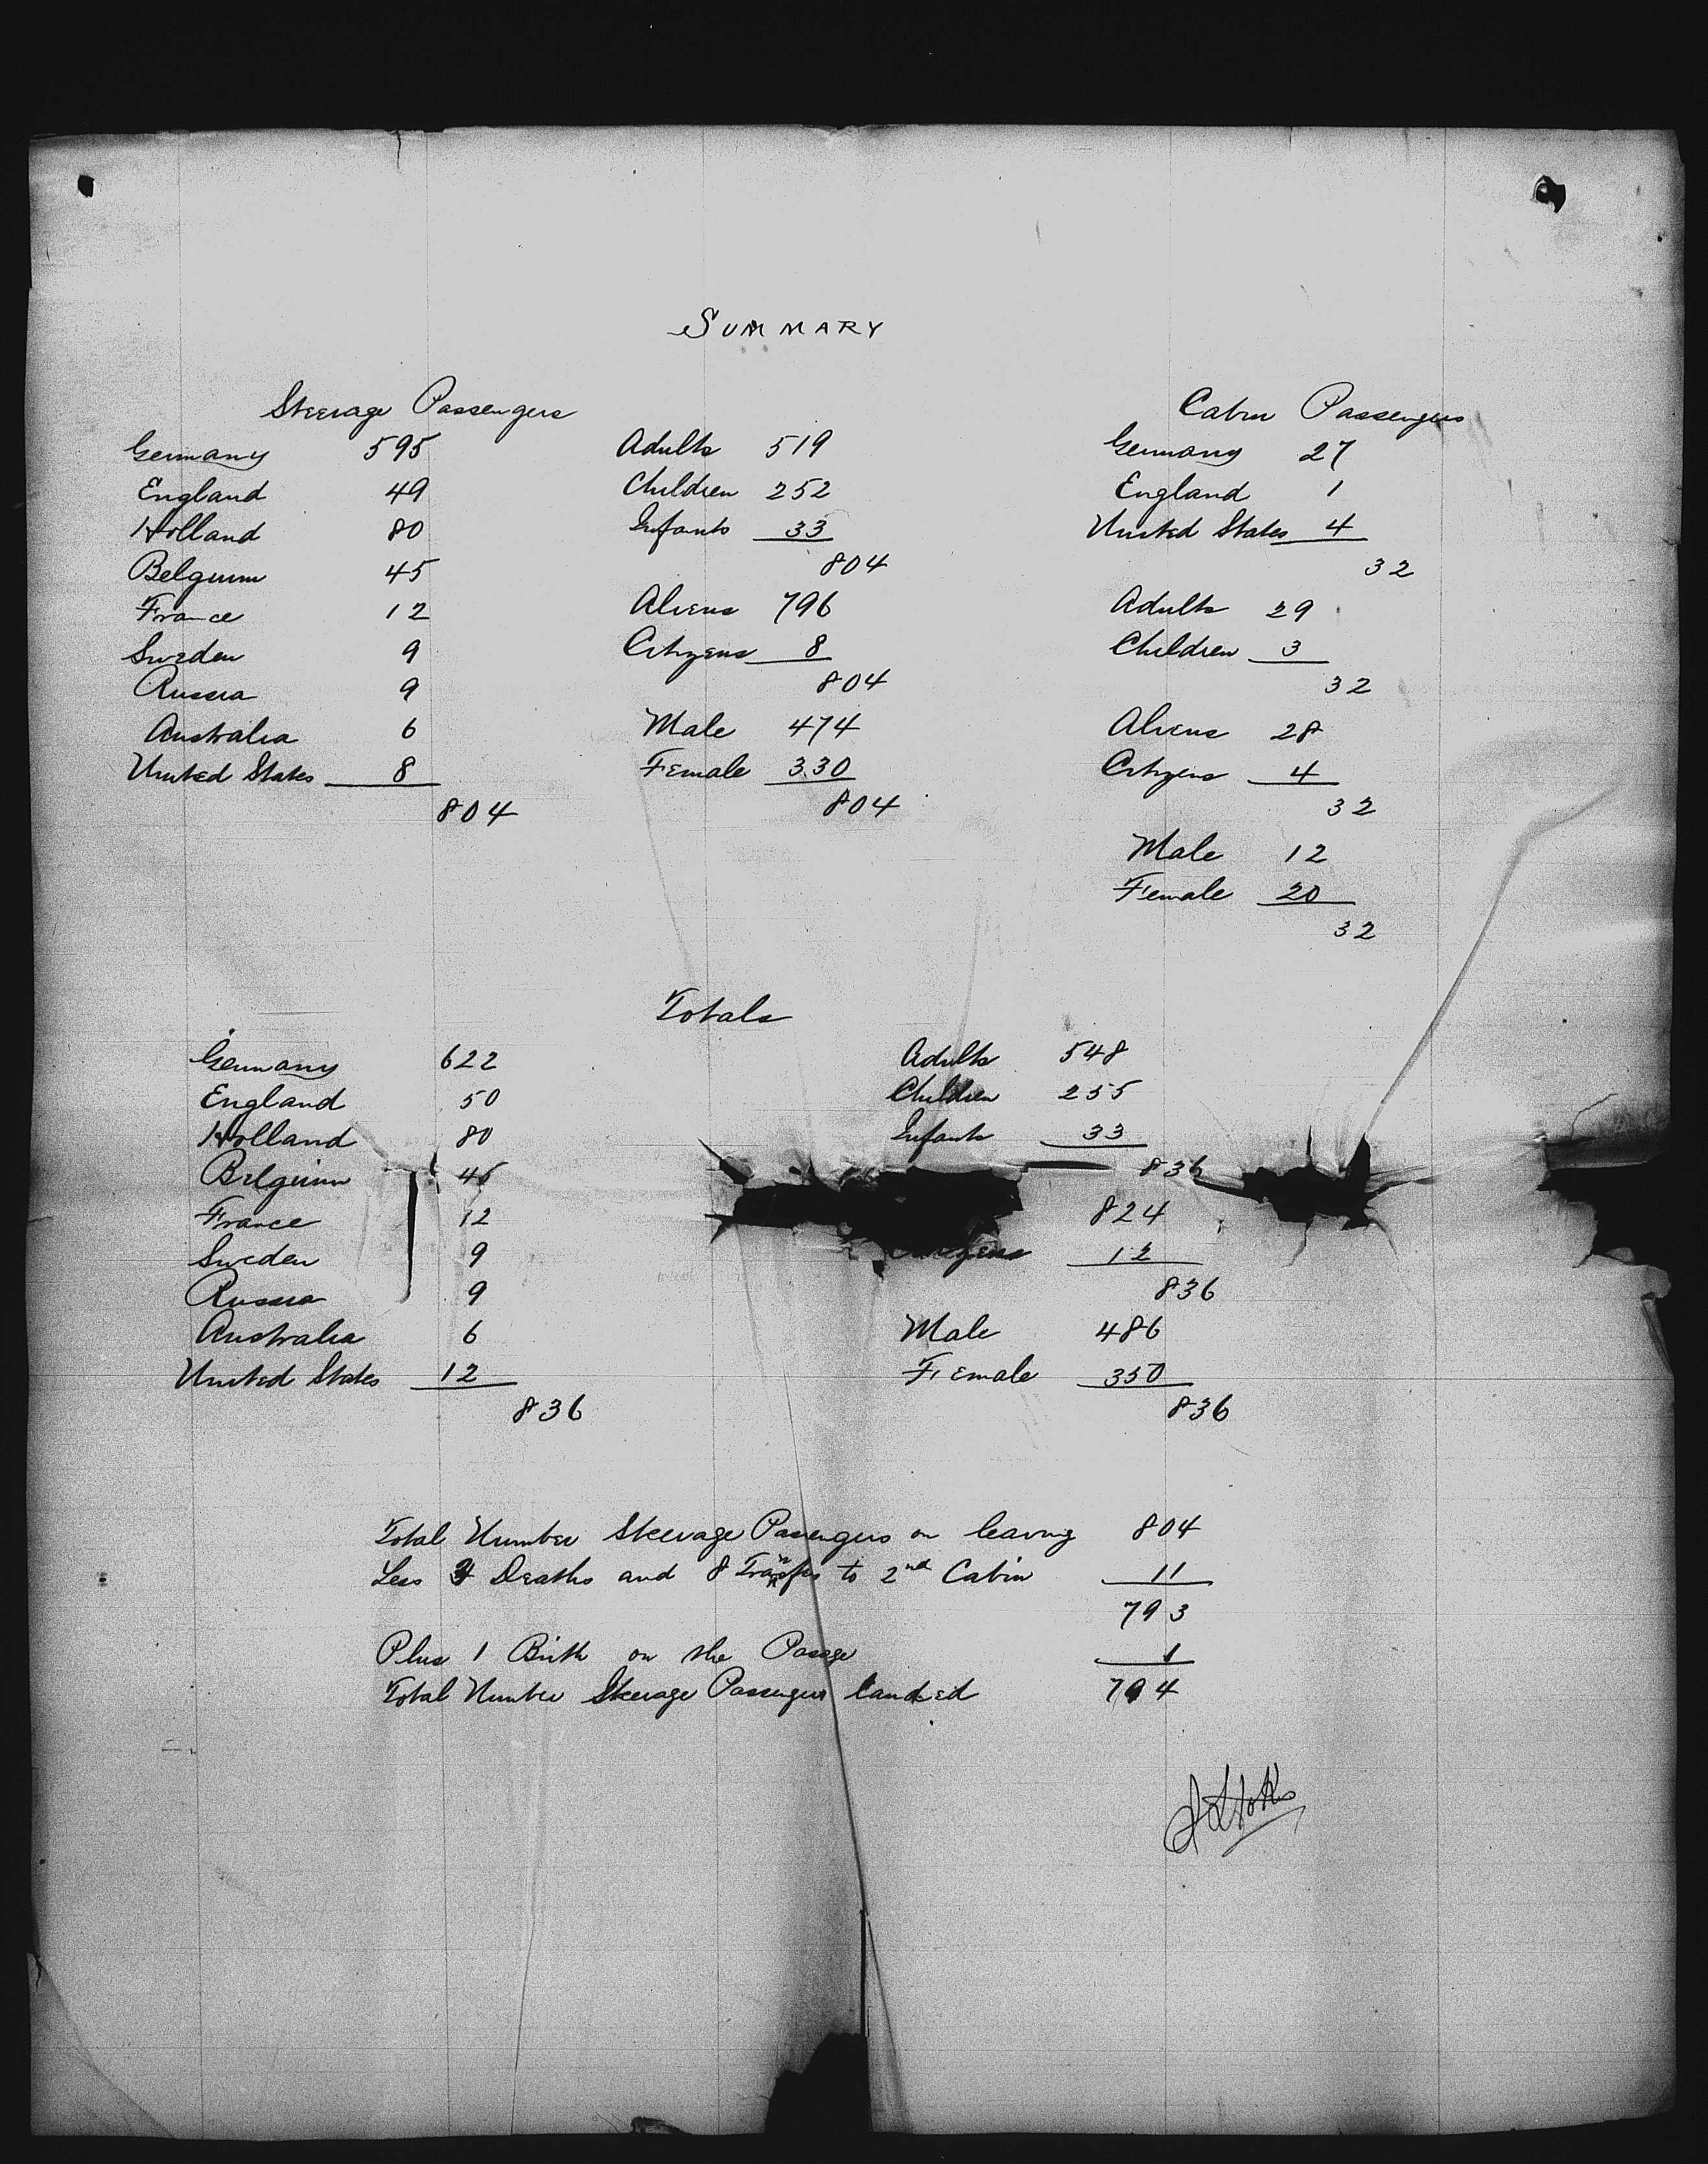 SUMMARY
Steerage Passengers
Germany 595
England 49
Holland 80
Belgium 45
France 12
Sweden 9
Russia 9
Australia 6
United States 8
804
Adults 519
Children 252
Infants 33
804
Aliens 796
Citizens 8
804
Male 474
Female 330
804
Cabin Passengers
Germany 27
England 1
United States 4
32
Adults 29
Children 3
32
Aliens 28
Citizens 4
32
Male 12
Female 20
32
Totals
Germany 622
England 50
Holland 80
Belgium 45
France 12
Sweden 9
Russia 9
Australia 6
United States 12
836
Adults 548
Children 255
Infants 33
836
824
Citizens 12
836
Male 486
Female 350
836
Total Number Steerage Passengers on leaving 804
Less 3 Deaths and 8 Transfs to 2nd Cabin 11
793
Plus 1 Birth on the Passge 1
Total Number Steerage Passengers landed 794